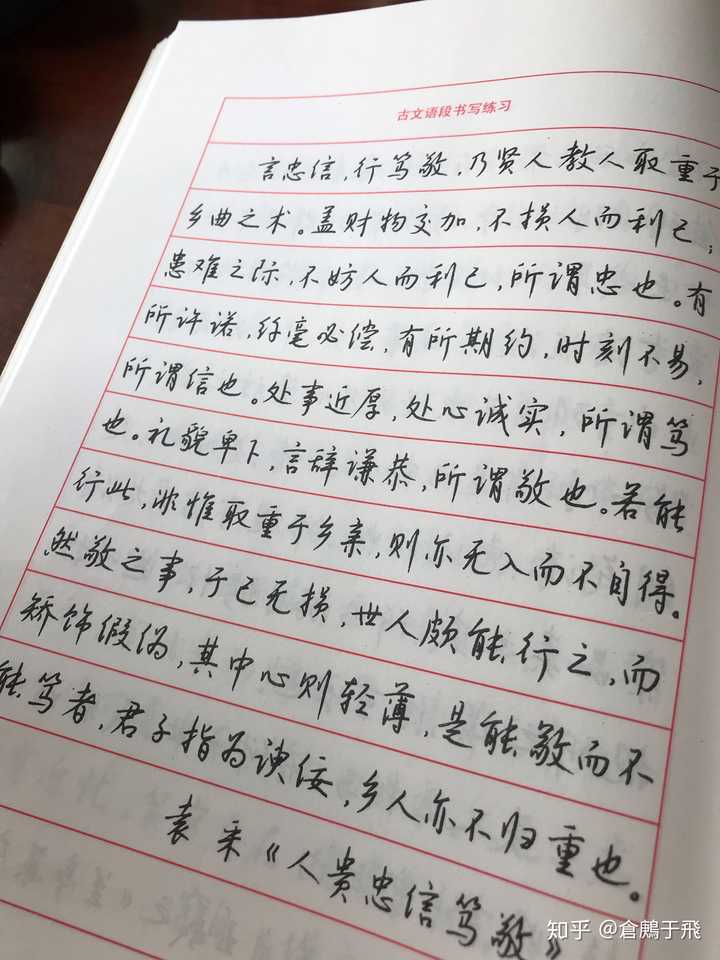 古文语段书写练习
言忠信，行笃敬，乃贤人教人取重于
乡曲之术。盖财物交加，不损人而利己；
患难之际，不妨人而利己，所谓忠也。有
所许诺，纤毫必偿，有所期约，时刻不易，
所谓信也。处事近厚，处心诚实，所谓笃
也。礼貌卑下，言辞谦恭，所谓敬也。若能
行此，非惟取重于乡亲，则亦无入而不自得。
然敬之事，于己无损，世人颇能行之，而
矫饰假伪，其中心则轻薄，是能敬而不
能笃者，君子指为谀佞，乡人亦不归重也。
袁采《人贵忠信笃敬》
知乎 @倉鶊于飛